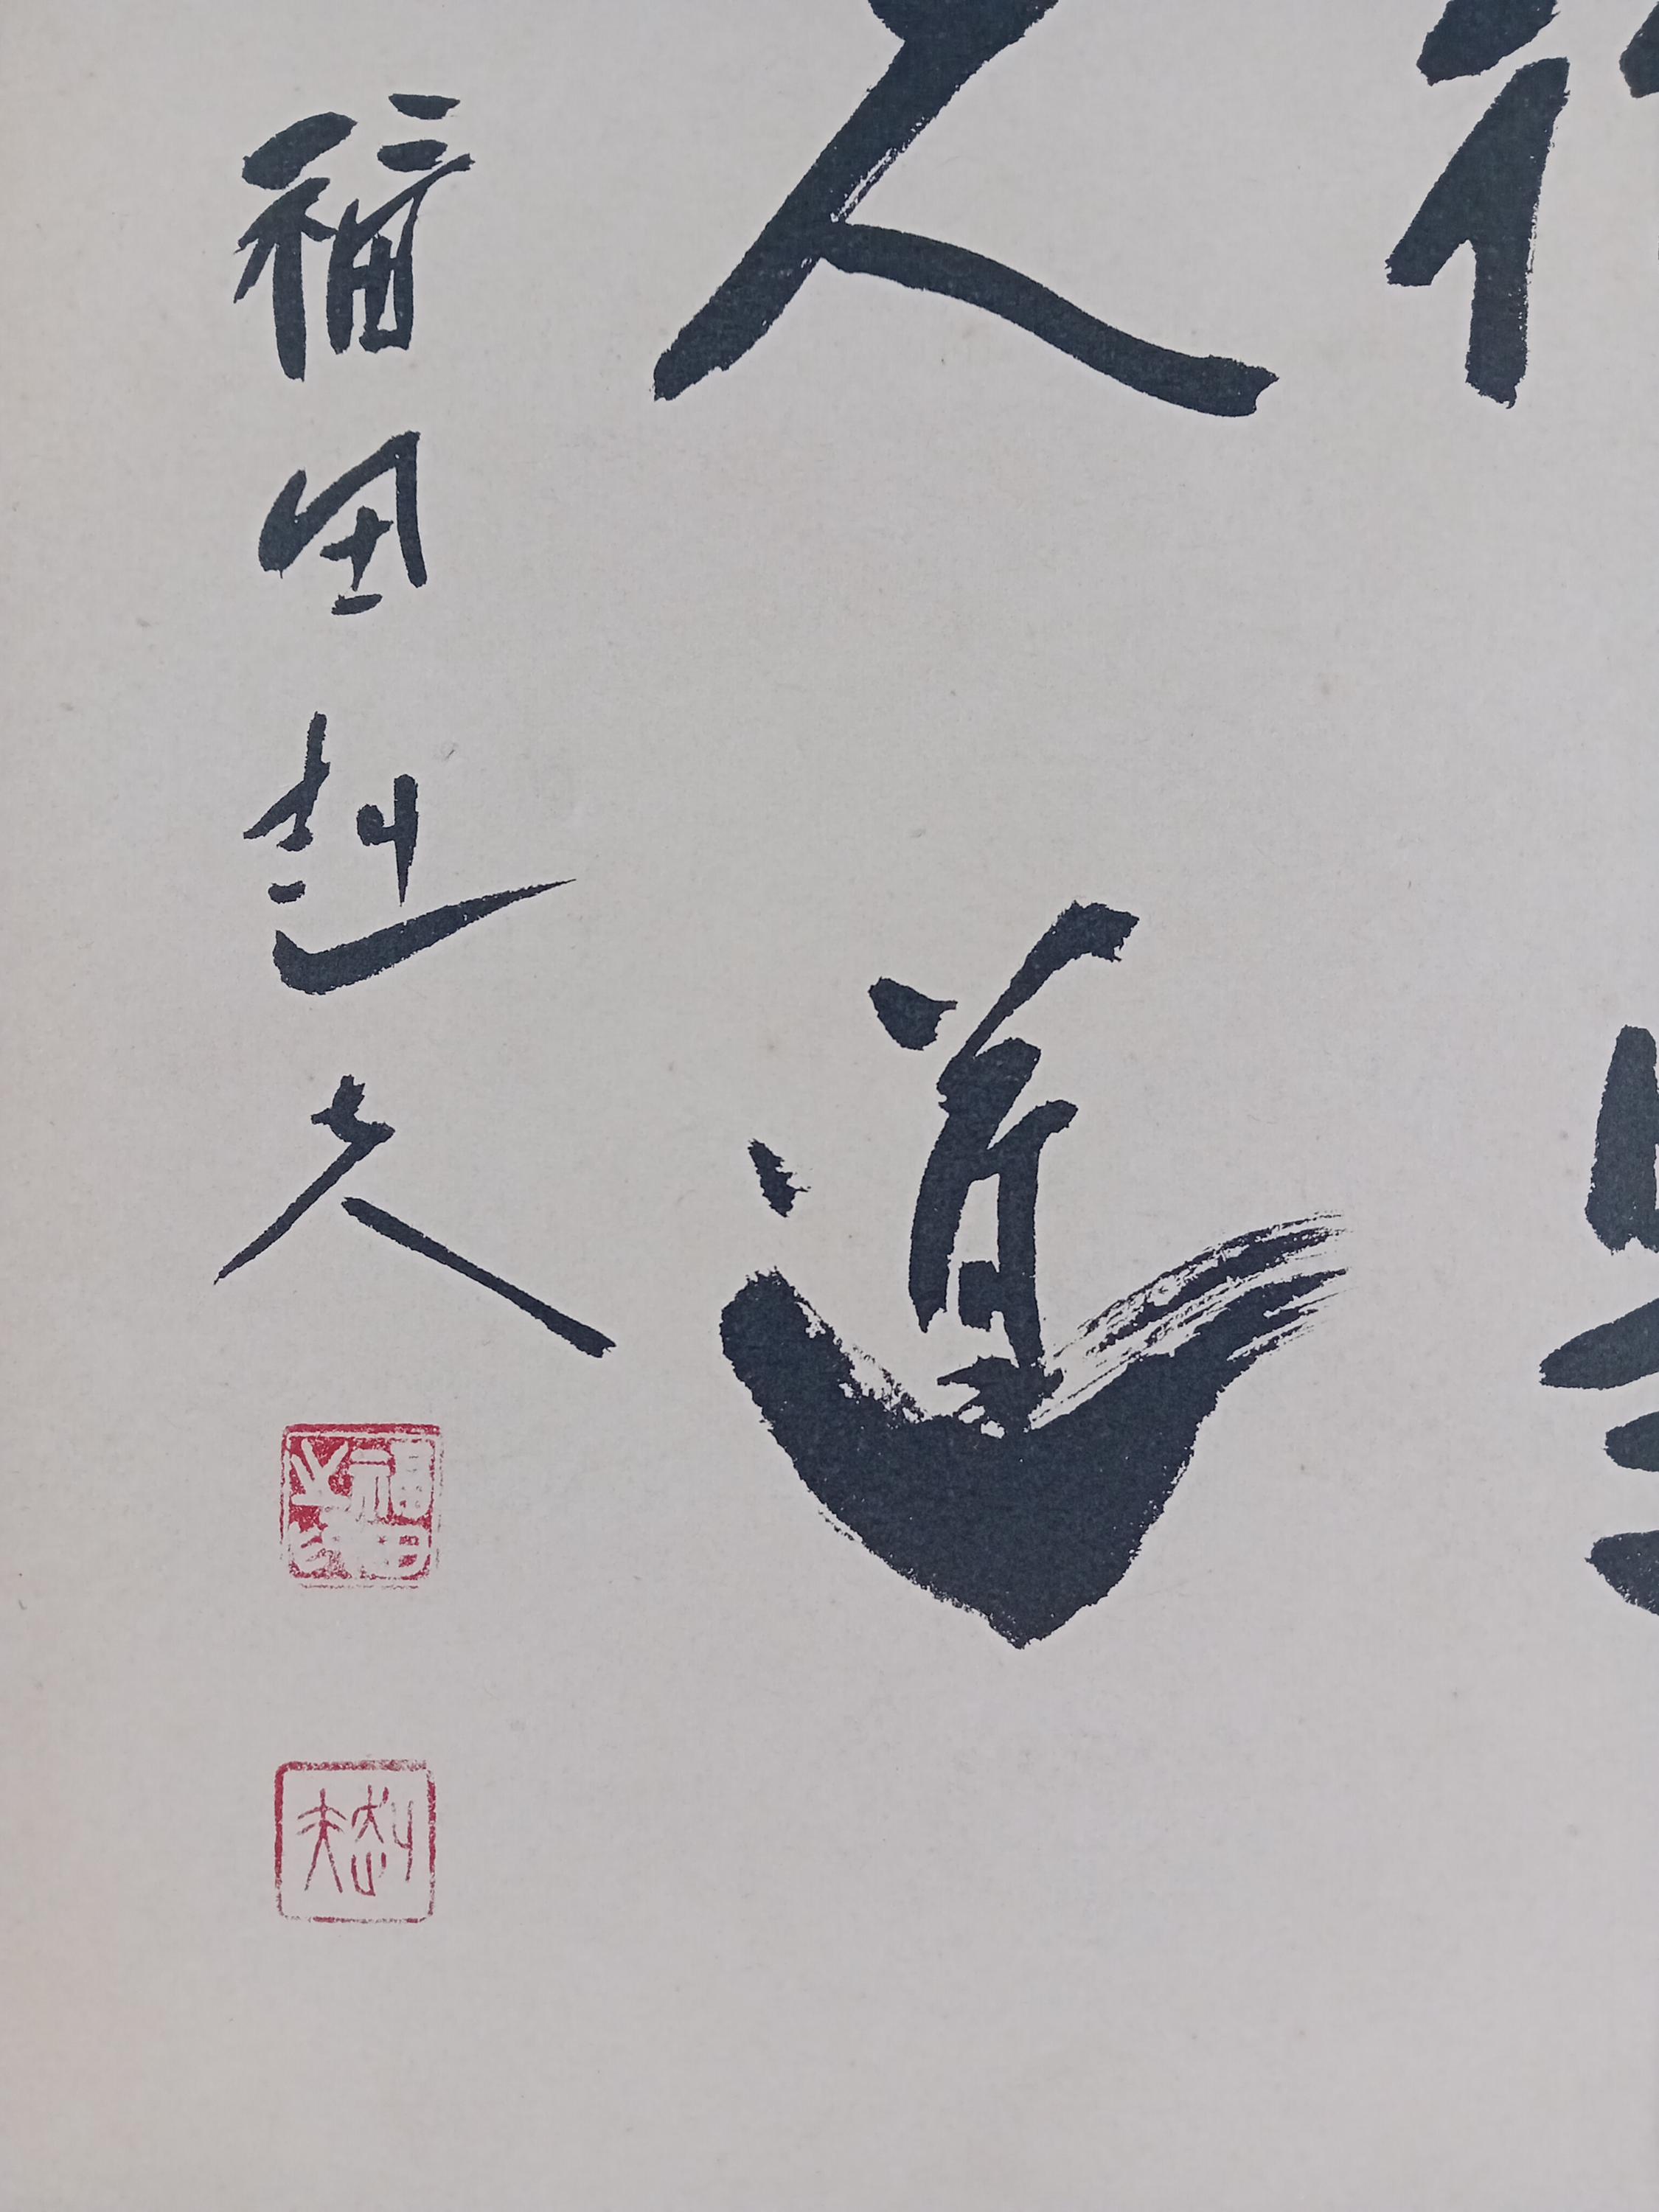 人道
福田赳夫
福田之印
赳夫